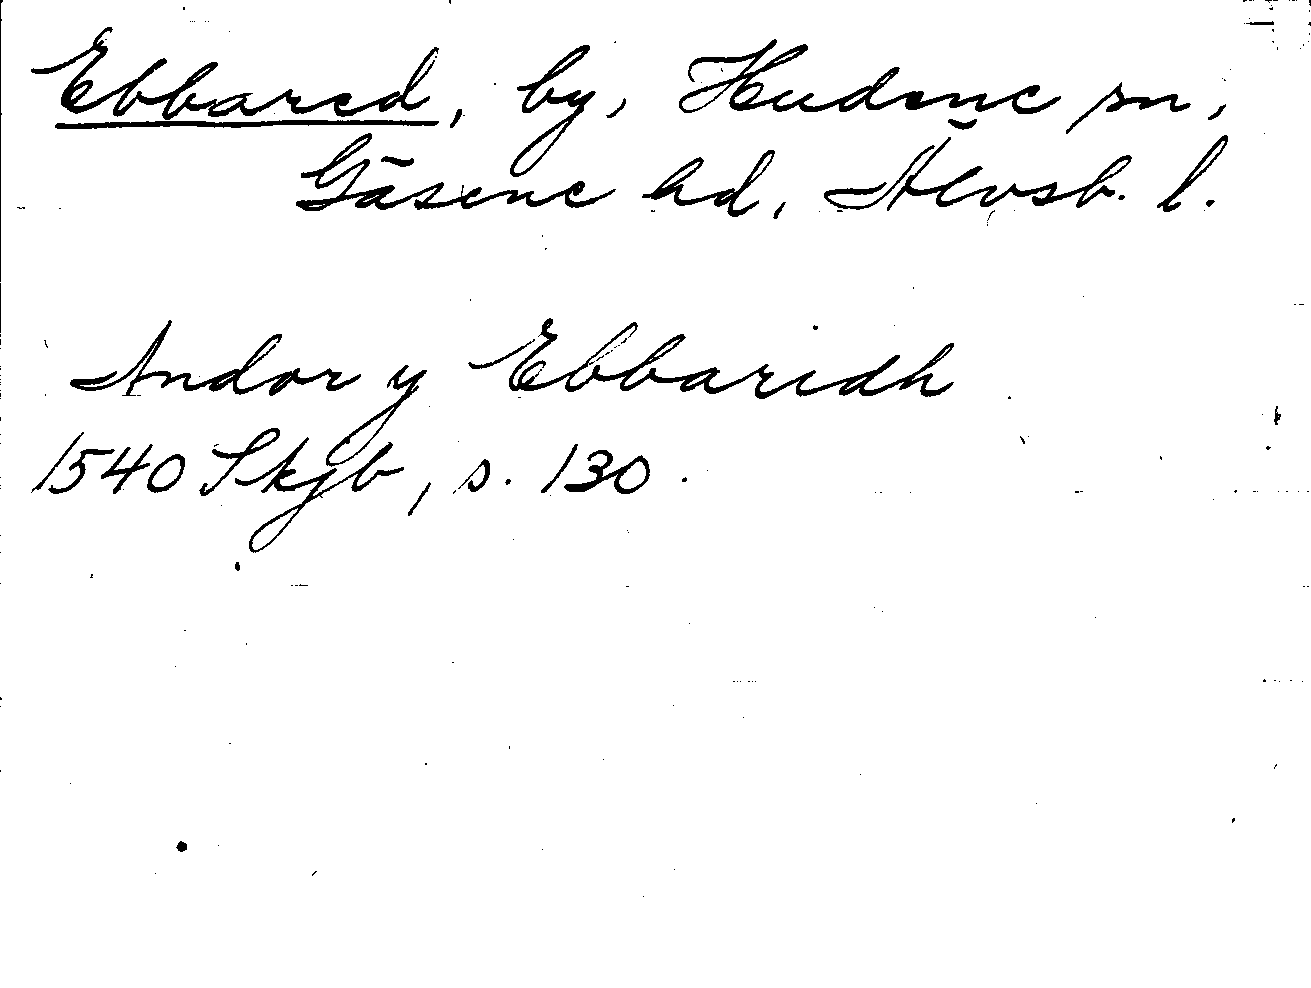 Ebbared, by, Hudene sn,
Gäsene hd, Älvsb. l.
Andor y Ebbaridh
1540 Skjb, s. 130.